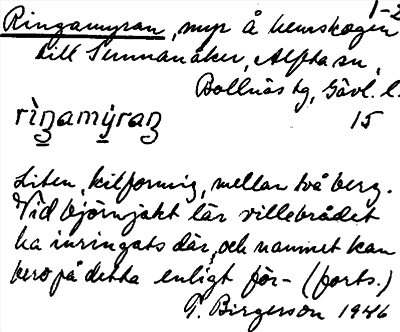 1-2
Ringamyran, myr å hemskogen
till Sunnanåker, Alfta sn,
Bollnäs tg, Gävl. l.
rìŋamy̆raŋ 15
Liten, kilformig, mellan två berg.
Vid björnjakt lär villebrådet
ha inringats där, och namnet kan
bero på detta enligt för- (forts.)
G. Birgerson 1946